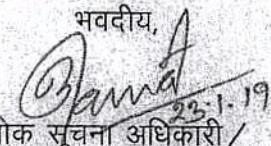 भवदीय,
23-1-19
लोक सूचना अधिकारी/